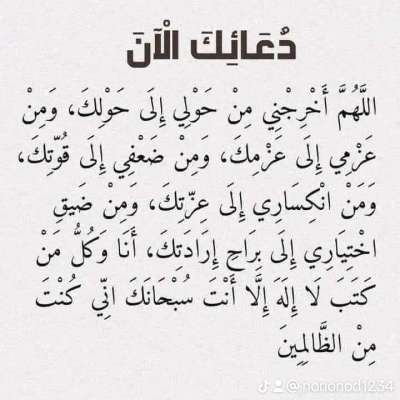 دُعَائِكَ الْآنَ
اللَّهُمَّ أَخْرِجْنِي مِنْ حَوْلِي إِلَى حَوْلِكَ، وَمِنْ
عَزْمِي إِلَى عَزْمِكَ، وَمِنْ ضَعْفِي إِلَى قُوَّتِكَ،
وَمَنْ انْكِسَارِي إِلَى عِزَّتِكَ، وَمِنْ ضَيقِ
اخْتِيَارِي إِلَى بِرَاحِ إِرَادَتِكَ، أَنَا وَكُلُّ مَنْ
كَتَبَ لَا إِلَهَ إِلَّا أَنْتَ سُبْحَانَكَ انِّي كُنْتَ
مِنْ الظَّالِمِينَ
@nononod1234